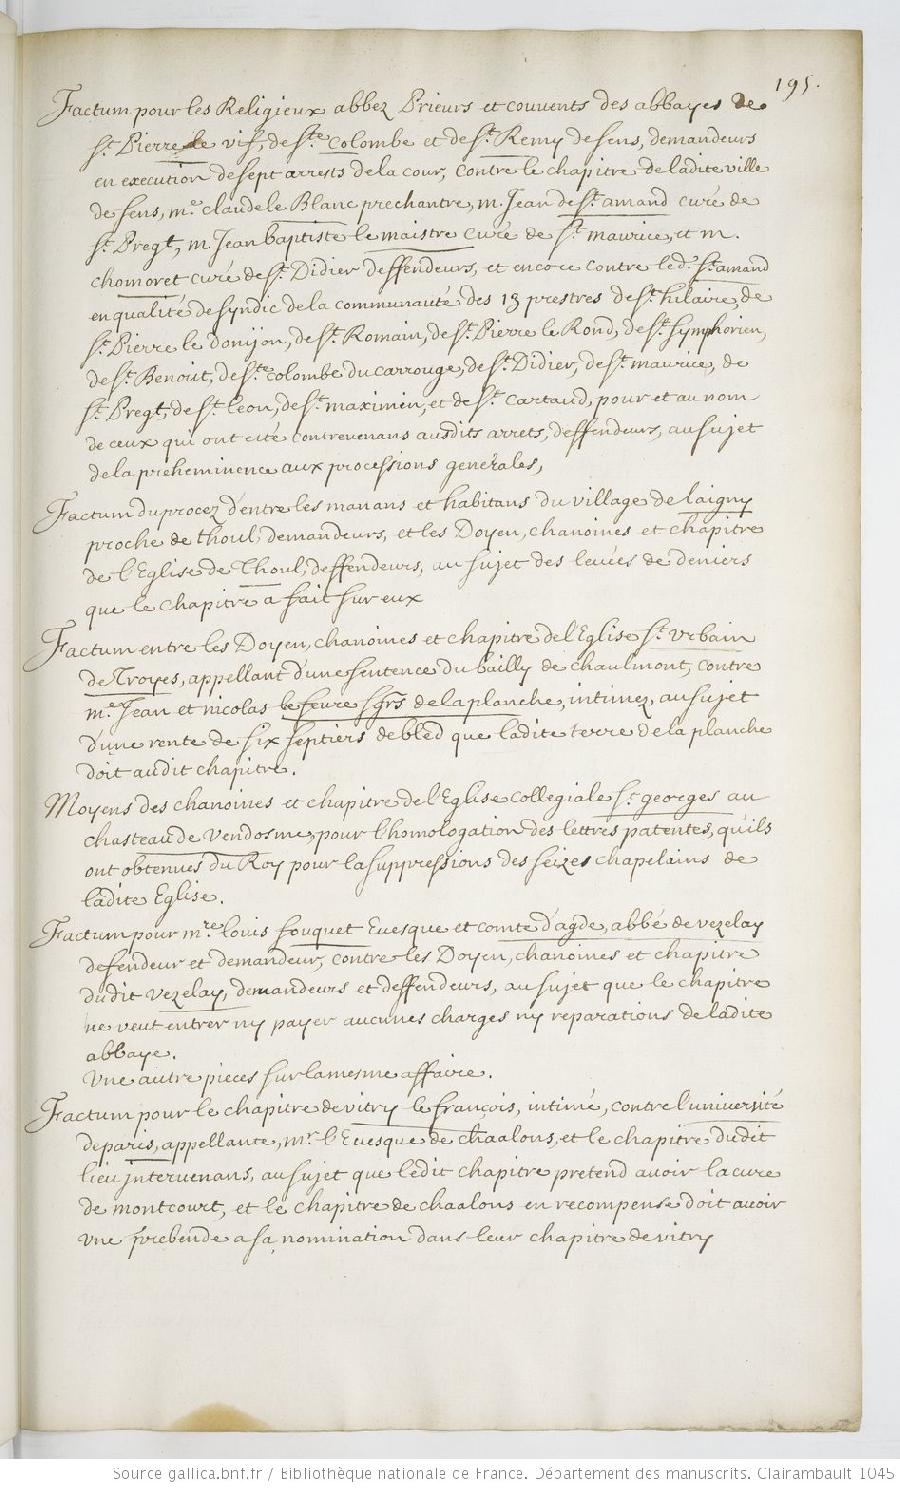 195.
Factum pour les Religieux abbez Prieurs et couvents des abbayes de
St. Pierre le vif, de Ste. Colombe et de St. Remy de sens, demandeurs
en execution de sept arrests de la cour, contre le chapitre de ladite ville
de sens, me. claude le Blanc prechantre, m. Jean de St. amand curé de
St. Pregt, m Jean baptiste le maistre curé de St. maurice, et m.
chomoret curé de St. Didier deffendeurs, et encore contre led. St. amand
en qualité de syndic de la communauté des 13 prestres de St. hilaire, de
St. Pierre le donjon, de St. Romain, de St. Pierre le Rond, de St. symphorien,
de St. Benoist, de Ste. colombe du carrouge, de St. Didier, de St. maurice, de
St. Pregt, de St. leon, de St. maximin, et de St. Cartaud, pour et au nom
de ceux qui ont été contrevenans ausdits arrets, deffendeurs, au sujet
de la preheminence aux processions generales,
Factum du procez d'entre les manans et habitans du village de laigny
proche de thoul, demandeurs, et les Doyen, chanoines et chapitre
de l'Eglise de Thoul, deffendeurs, au sujet des levées de deniers
que le chapitre a fait sur eux
Factum entre les Doyen, chanoines et chapitre de l'Eglise St. Urbain
de Troyes, appellant d'une sentence du bailly de chaulmont, contre
me. Jean et nicolas le fevre sgrs de la planche, intimez, au sujet
d'une rente de six septiers de bled que ladite terre de la planche
doit audit chapitre.
Moyens des chanoines et chapitre de l'Eglise collegiale St. georges au
chasteau de Vendosme, pour l'homologation des lettres patentes, qu'ils
ont obtenues du Roy pour la suppressions des seizes chapelains de
ladite Eglise.
Factum pour mre. louis fouquet Evesque et comte d'agde, abbé de vezelay
defendeur et demandeur, contre les Doyen, chanoines et chapitre
dudit vezelay, demandeurs et deffendeurs, au sujet que le chapitre
ne veut entrer ny payer aucunes charges ny reparations de ladite
abbaye.
Une autre pieces sur la mesme affaire.
Factum pour le chapitre de vitry le françois, intimé, contre l'université
de paris, appellante, mr. l'Evesque de chaalons, et le chapitre dudit
lieu intervenans, au sujet que ledit chapitre pretend avoir la cure
de montcourt, et le chapitre de chaalons en recompense doit avoir
une prebende a sa nomination dans leur chapitre de vitry
Source gallica.bnf.fr / Bibliothèque nationale de France. Département des manuscrits. Clairambault 1045